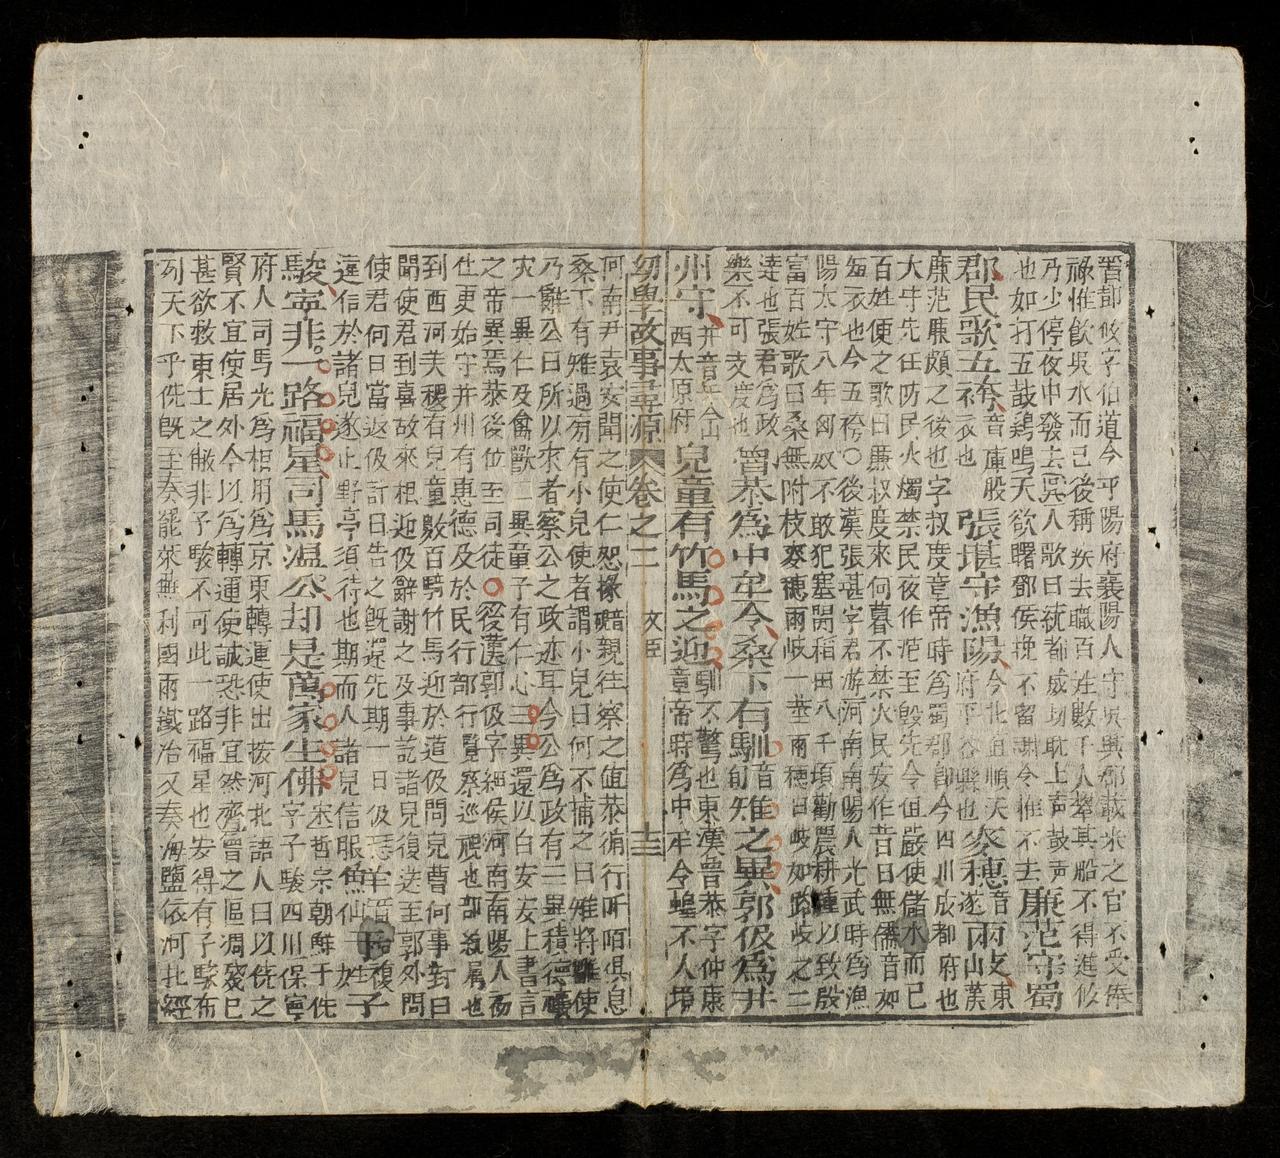 晋鄧攸字伯道今平陽府襄陽人守吳興郡載米之官不受俸
祿惟飲吳水而已後稱疾去職百姓數千人牽其船不得進攸
乃少停攸中發去吳人歌曰紞都感切耽上声鼓声
也如打五鼓鷄鳴天欲曙鄧侯挽不留謝令推不去廉范守蜀
郡民歌五袴音庫股衣也張堪守漁陽今北直順天府平谷縣也麥穗音遂兩岐東漢
廉范廉頗之後也字叔度章帝時爲蜀郡郡今四川成都府也
大守先任防民火燭禁民夜作范至毀先令但嚴使儲水而已
百姓便之歌曰廉叔度來何暮不禁火民安作昔日無儒音如
每衣也今五袴○後漢張堪字君游河南南陽人光武時爲漁
陽太守八年匈奴不敢犯塞開稻田八千頃勸農耕種以致殷
富百姓歌曰桑無附枝麥穗兩岐一莖兩穗曰岐如路岐之二
達也張君爲政
樂不可支度也魯恭爲中牟令桑下有馴音旬雉之異郭伋爲并
州守并音平今山西太原府兒童有竹馬之迎馴不驚也東漢魯恭字仲康
章帝時爲中牟令蝗不入境
幼學故事尋源 卷之二 文臣 十三
河南尹袁安聞之使仁恕掾暗親往察之値恭循行阡陌俱息
桑下有雉過旁有小兒使者謂小兒曰何不捕之曰雉將雛使
乃辭公曰所以來者察公之政迹耳今公爲政有三異積德禳
灾一異仁及禽獸二異童子有仁心三異還以白安安上書言
之帝異焉恭後位至司徒○後漢郭伋字細侯河南南陽人而
仕更始守并州有惠德及於民行部行覽察巡視也部叙属也
到西河美稷有兒童數百騎竹馬迎於道伋問兒曹何事對曰
聞使君到喜故來相迎伋辭謝之及事訖諸兒復送至郭外問
使君何日當返伋計日告之旣還先期一日伋恐
違信於諸兒遂止野亭須待也期而入諸兒信服鮮于
駿寧非一路福星司馬温公却是萬家生佛宋哲宗朝鮮于侁
字子駿四川保寧
府人司馬光爲相用爲京東轉運使出按河北語人曰以侁之
賢不宜使居外今以爲轉運使誠恐非宜然齊魯之區凋殘已
甚欲救東土之敝非子駿不可此一路福星也安得有子駿布
列天下乎侁旣至奏罷萊蕪利國兩鐵冶又奏海鹽依河北經